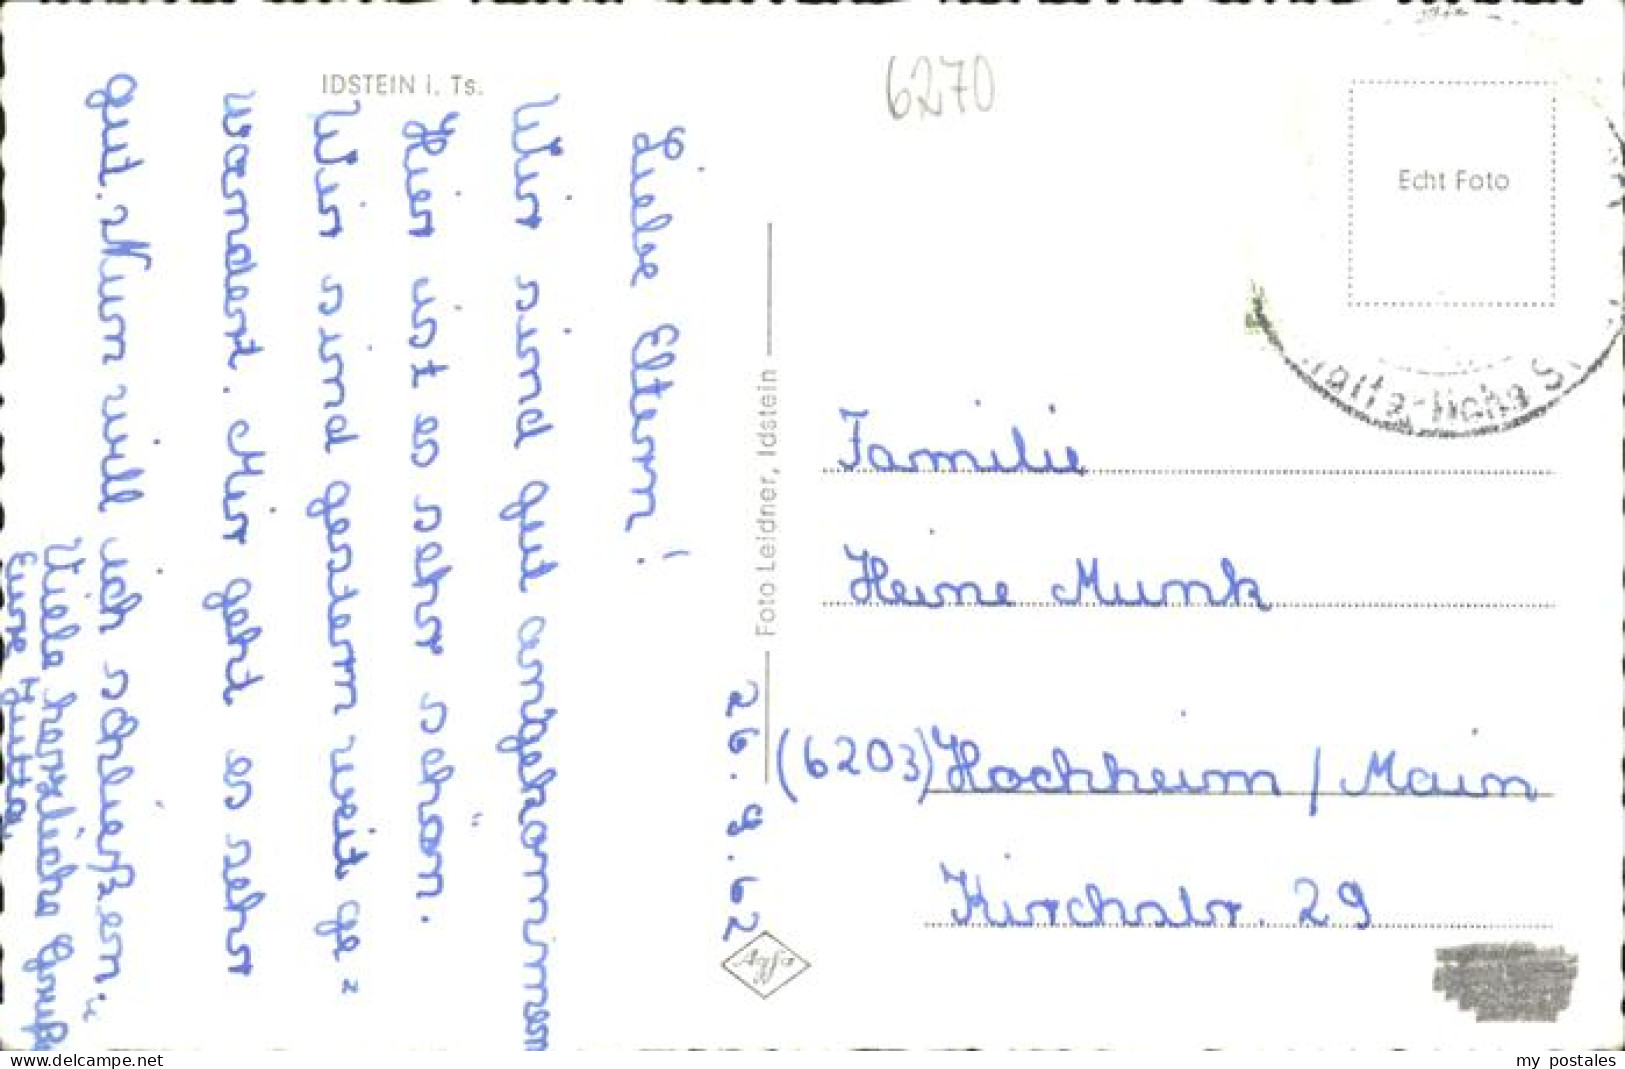 IDSTEIN i. Ts.
Liebe Eltern!
Wir sind gut angekommen
Hier ist es sehr schön.
Wir sind gestern weit ge=
wandert. Mir geht es sehr
gut. Nun will ich schließen.
Viele herzliche Grüße
Eure Jutta.
Foto Leidner, Idstein
26.9.62
6270
Echt Foto
Familie
Heine Munk
(6203) Hochheim / Main
Kirchstr. 29
www.delcampe.net
my postales